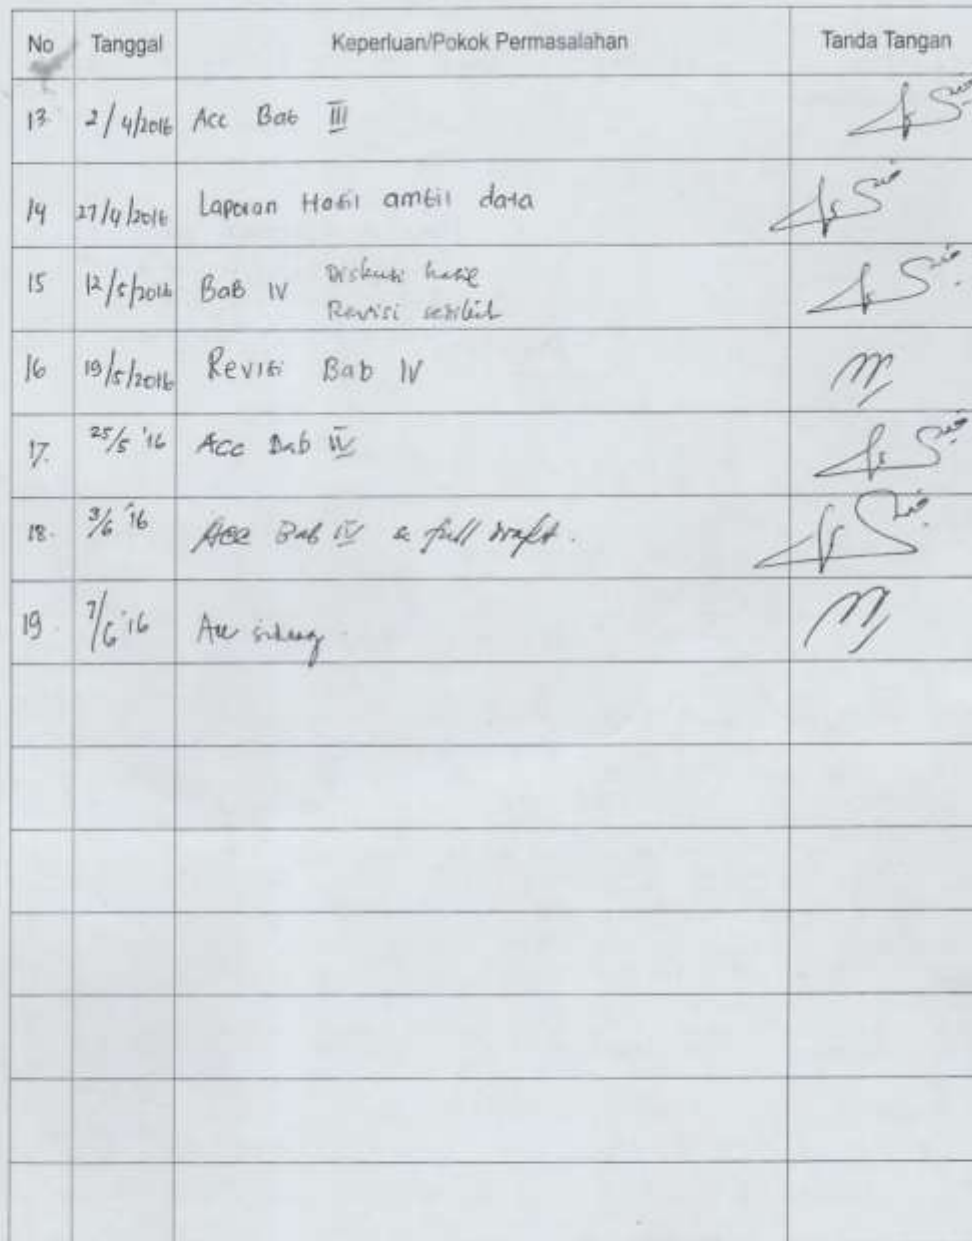 No Tanggal Keperluan/Pokok Permasalahan Tanda Tangan
13. 2/4/2016 Acc Bab III
14 27/4/2016 Laporan Hasil ambil data
15 12/5/2016 Bab IV Diskusi hasil
Revisi
16 19/5/2016 Revisi Bab IV
17. 25/5 '16 Acc Bab IV
18. 3/6 '16 Acc Bab IV & full draft.
19. 7/6 '16 Acc sidang.